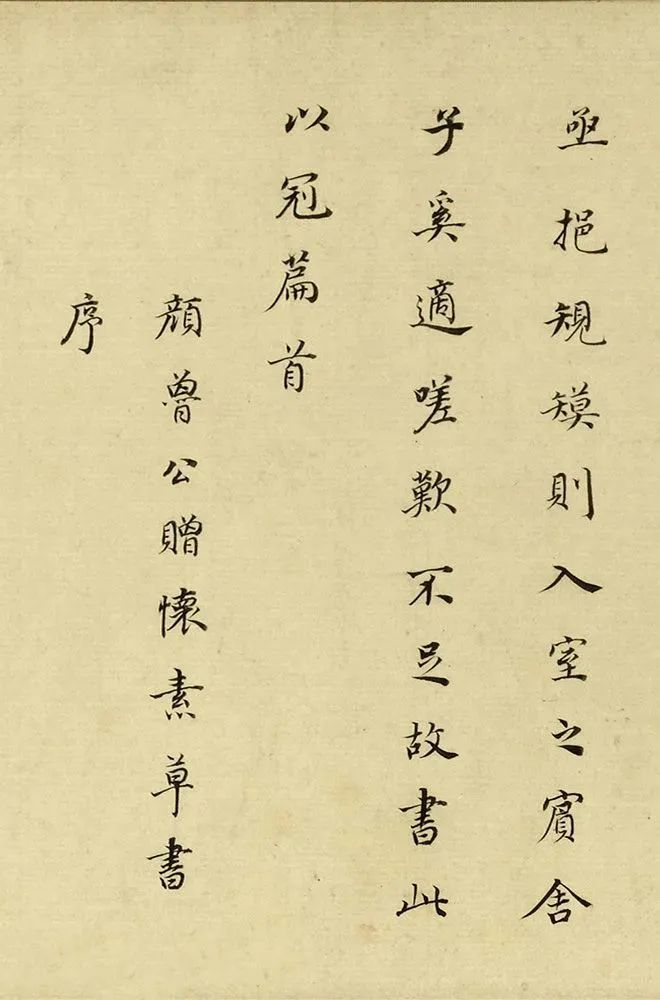 亟挹規模則入室之賓舍
子奚適嗟歎不足故書此
以冠篇首
顏魯公贈懷素草書
序